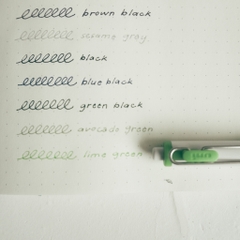 brown black
sesame gray
black
blue black
green black
avocado green
lime green